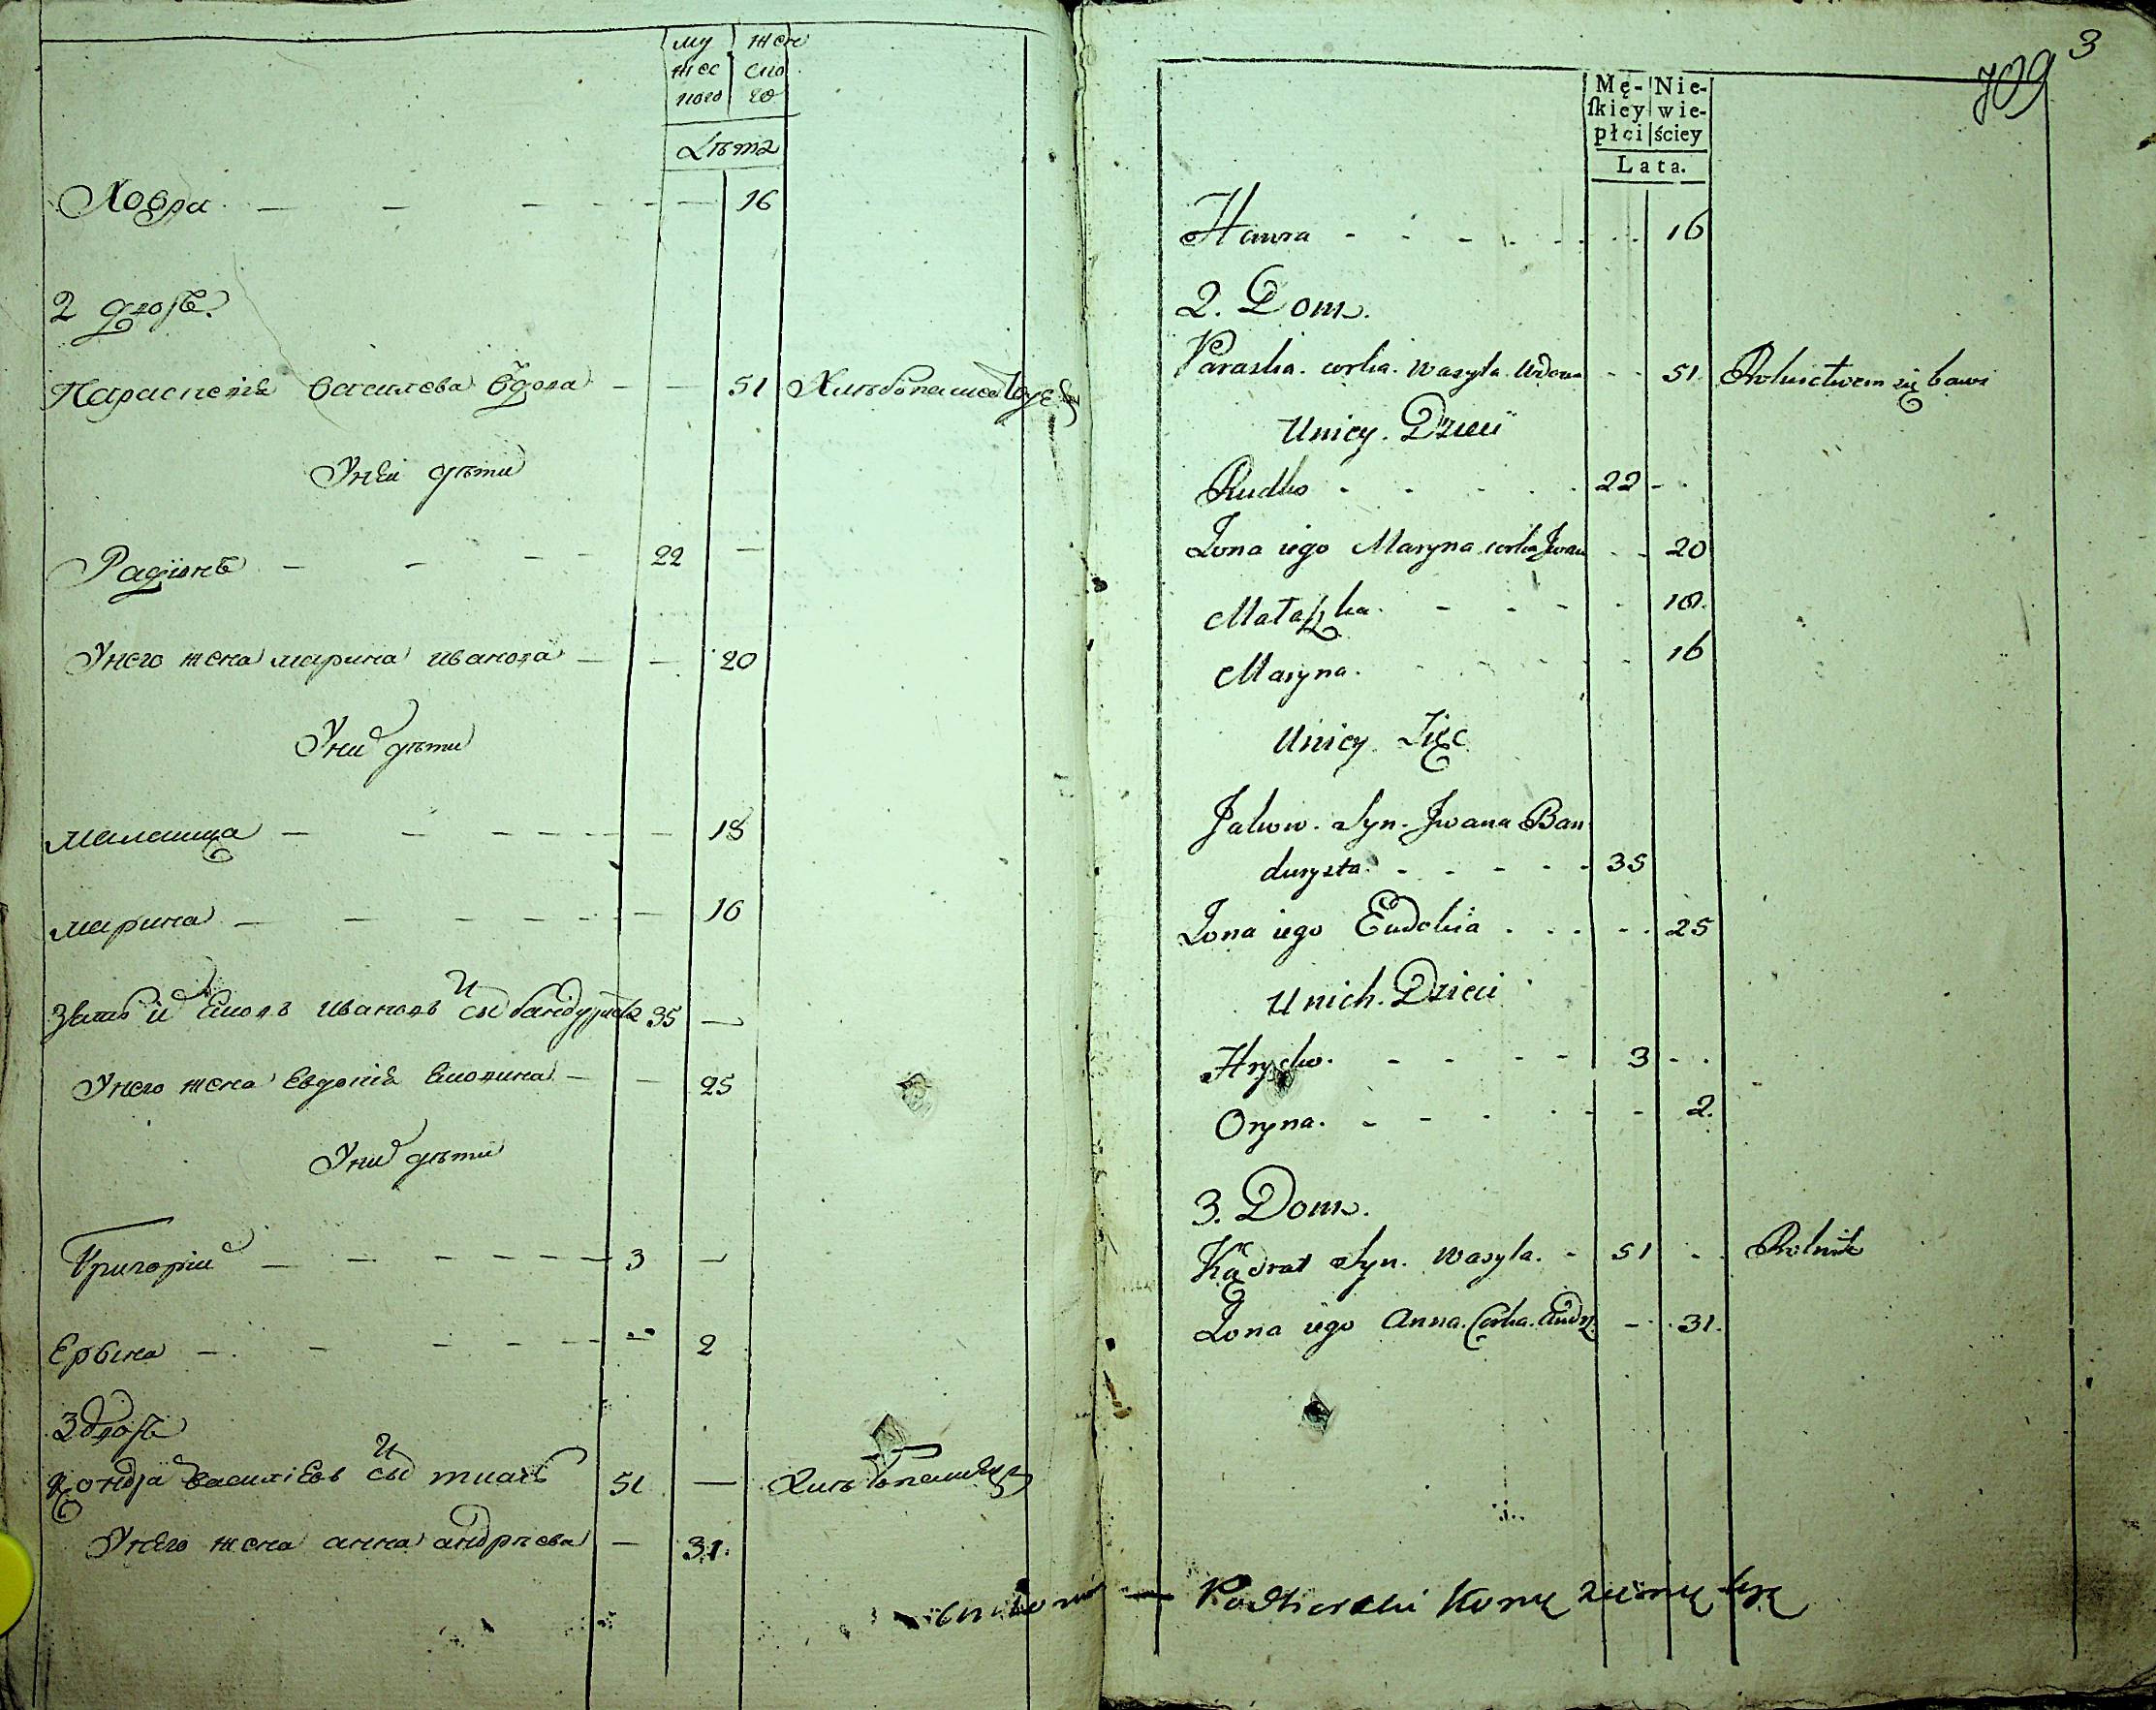 му жен
жес ско
кого го
Лѣта
Ховра 16
2 дворъ
Параскевія Василева вдова 51 Хлѣбопашествуетъ
У нея дѣти
Радіонъ 22
У него жена марина иванова 20
У них дѣти
маланка 18
марина 16
Зять ей иванов сын бандуриста 35
У него жена Евдокія 25
У них дѣти
Григорій 3
Ерына 2
3 дворъ
Кондра василіевъ сын ткачъ 51 Хлѣбопашец
У него жена анна андреева 31.
3
709
Mę- Nie-
ſkiey wie-
płci ściey
Lata.
Hawra 16
2. Dom.
Paraska. corka. Wasyla. Wdowa 51. Rolnictwem się bawi
U nicy. Dzieci
Rudko 22
Żona iego Maryna. corka Jwan 20
Małaszka. 18.
Maryna. 16
U nicy. Zięc
Jakow. Syn. Jwana Ban
durysta. 35
Żona iego Eudokia 25
U nich. Dzieci
Hrycko. 3
Oryna. 2.
3. Dom.
Kądrat Syn. Wasyla. 51 Rolnik
Żona iego Anna. Corka. Andr. 31.